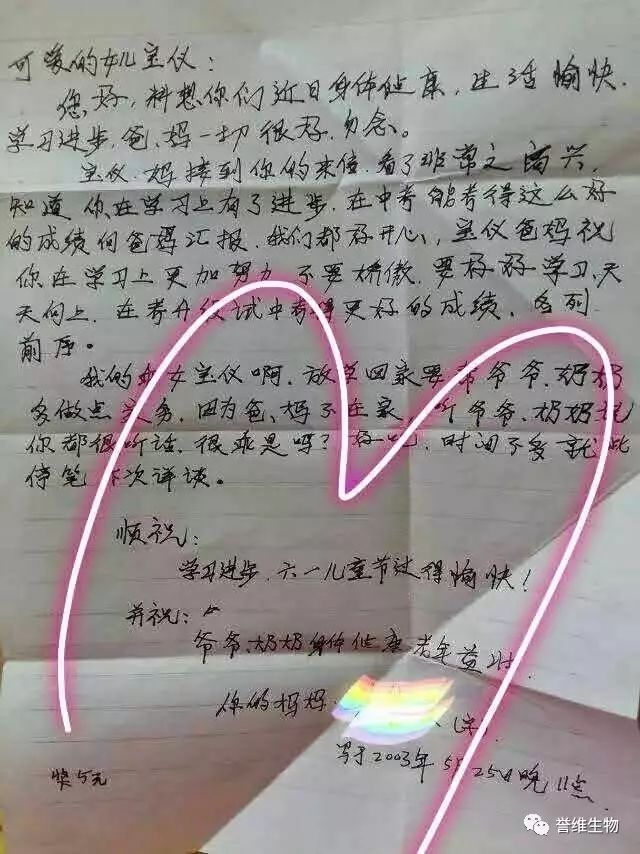 可爱的女儿宝仪：
您好，料想你们近日身体健康，生活愉快，
学习进步，爸、妈一切很好，勿念。
宝仪，妈接到你的来信，看了非常之高兴，
知道你在学习上有了进步，在中考能考得这么好
的成绩向爸妈汇报，我们都好开心，宝仪爸妈祝
你在学习上更加努力不要娇傲，要好好学习，天
天向上，在考升级试中考得更好的成绩，名列
前序。
我的女宝仪啊，放学回家要帮爷爷、奶奶
多做点家务，因为爸、妈不在家，听爷爷、奶奶说
你都很听话，很乖是吗？好吧，时间不多就此
停笔下次详谈。
顺祝：
学习进步，六一儿童节过得愉快！
并祝：
爷爷、奶奶身体健康老年益壮
你的妈妈
写于2003年5月25日晚11点
奖5元
誉维生物